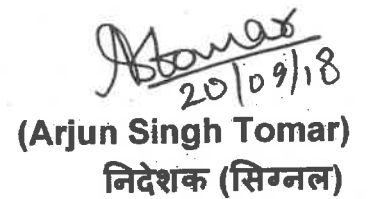 AsTomar
20/09/18
(Arjun Singh Tomar)
निदेशक (सिग्नल)